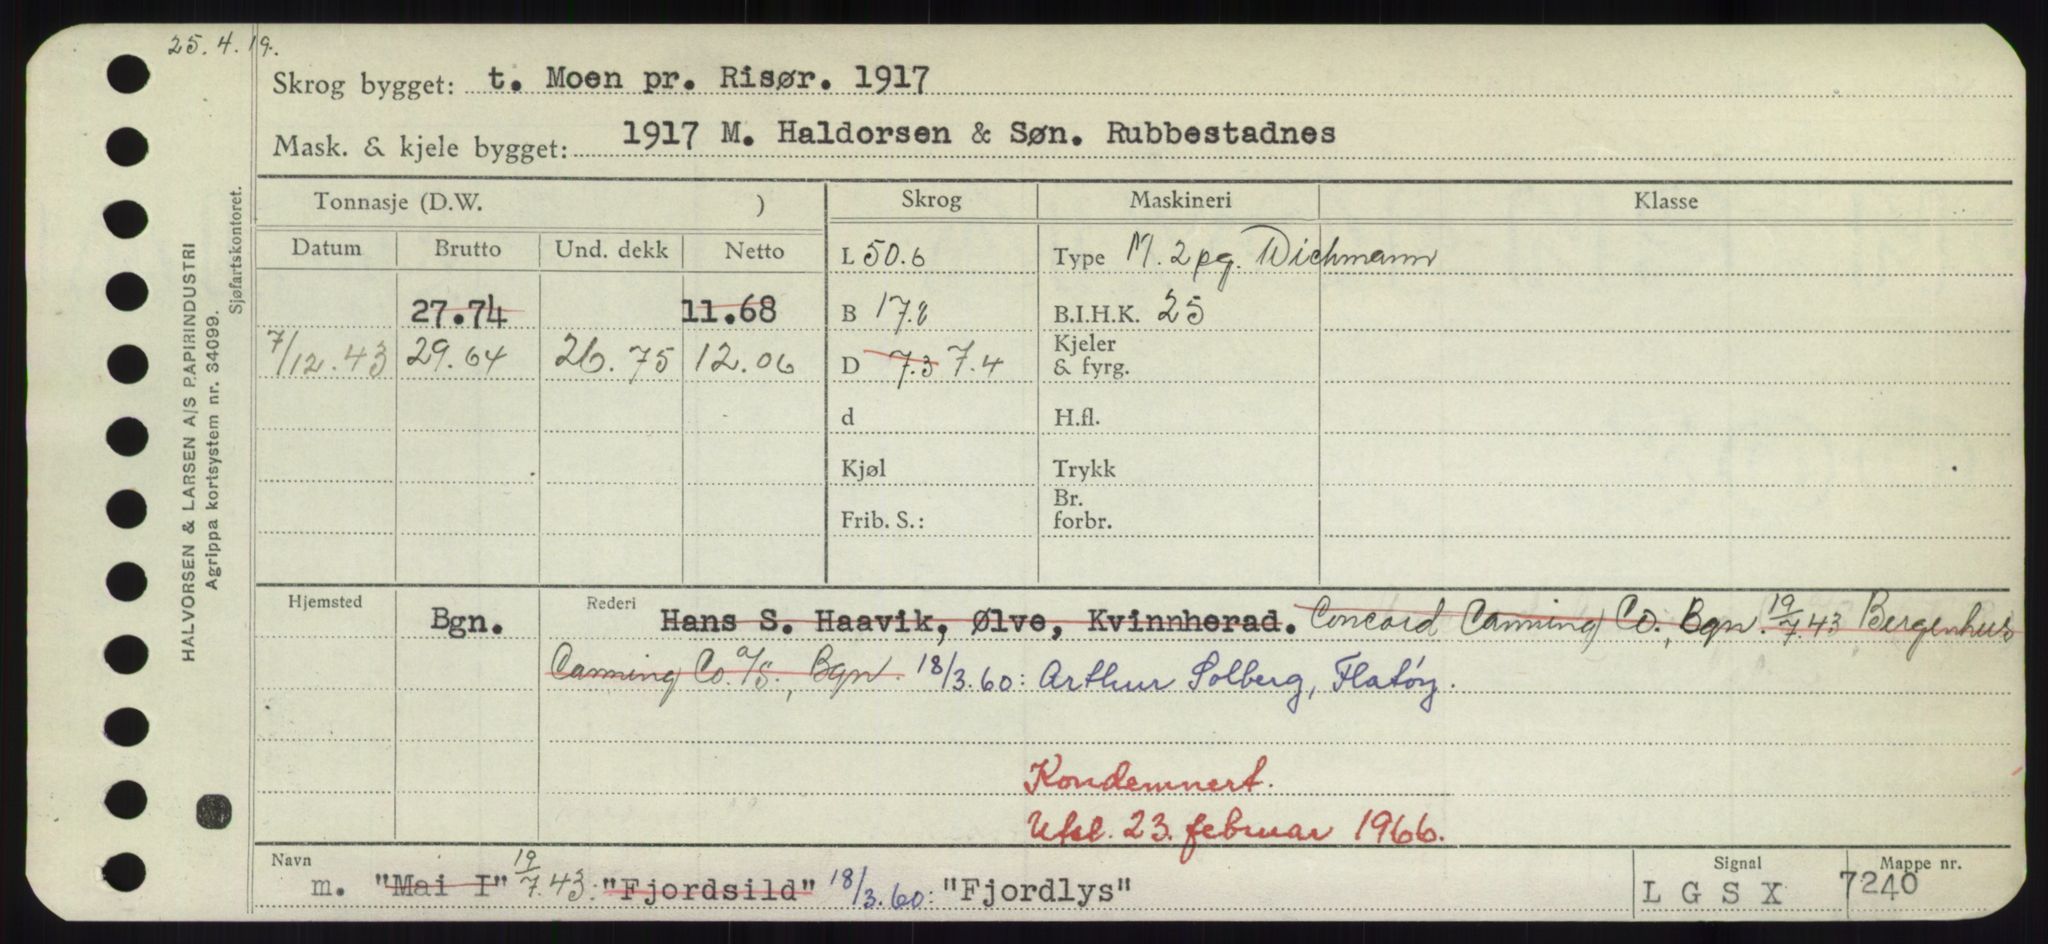 25.4.19.
Skrog bygget: t. Moen pr. Risør. 1917
Mask. & kjele bygget: 1917 M. Haldorsen & Søn. Rubbestadnes
HALVORSEN & LARSEN A/S PAPIRINDUSTRI
Agrippa kortsystem nr. 34099.
Sjøfartskontoret.
Tonnasje (D.W. ) Skrog Maskineri Klasse
Datum Brutto Und. dekk Netto
L 50.6 Type M. 2 pg. Wichmann
27.74 11.68 B 17.8 B.I.H.K. 25
7/12.43 29.64 26.75 12.06 D 7.3 7.4 Kjeler
& fyrg.
d H.fl.
Kjøl Trykk
Frib. S.: Br.
forbr.
Hjemsted Bgn. Rederi Hans S. Haavik, Ølve, Kvinnherad. Concord Canning Co., Bgn. 19/7.43 Bergenhus
Canning Co. a/s., Bgn. 18/3.60: Arthur Solberg, Flatöy.
Kondemnert.
Utsl. 23. februar 1966.
Navn Signal Mappe nr.
m. "Mai I" 19/7.43: "Fjordsild" 18/3.60: "Fjordlys" LGSX 7240